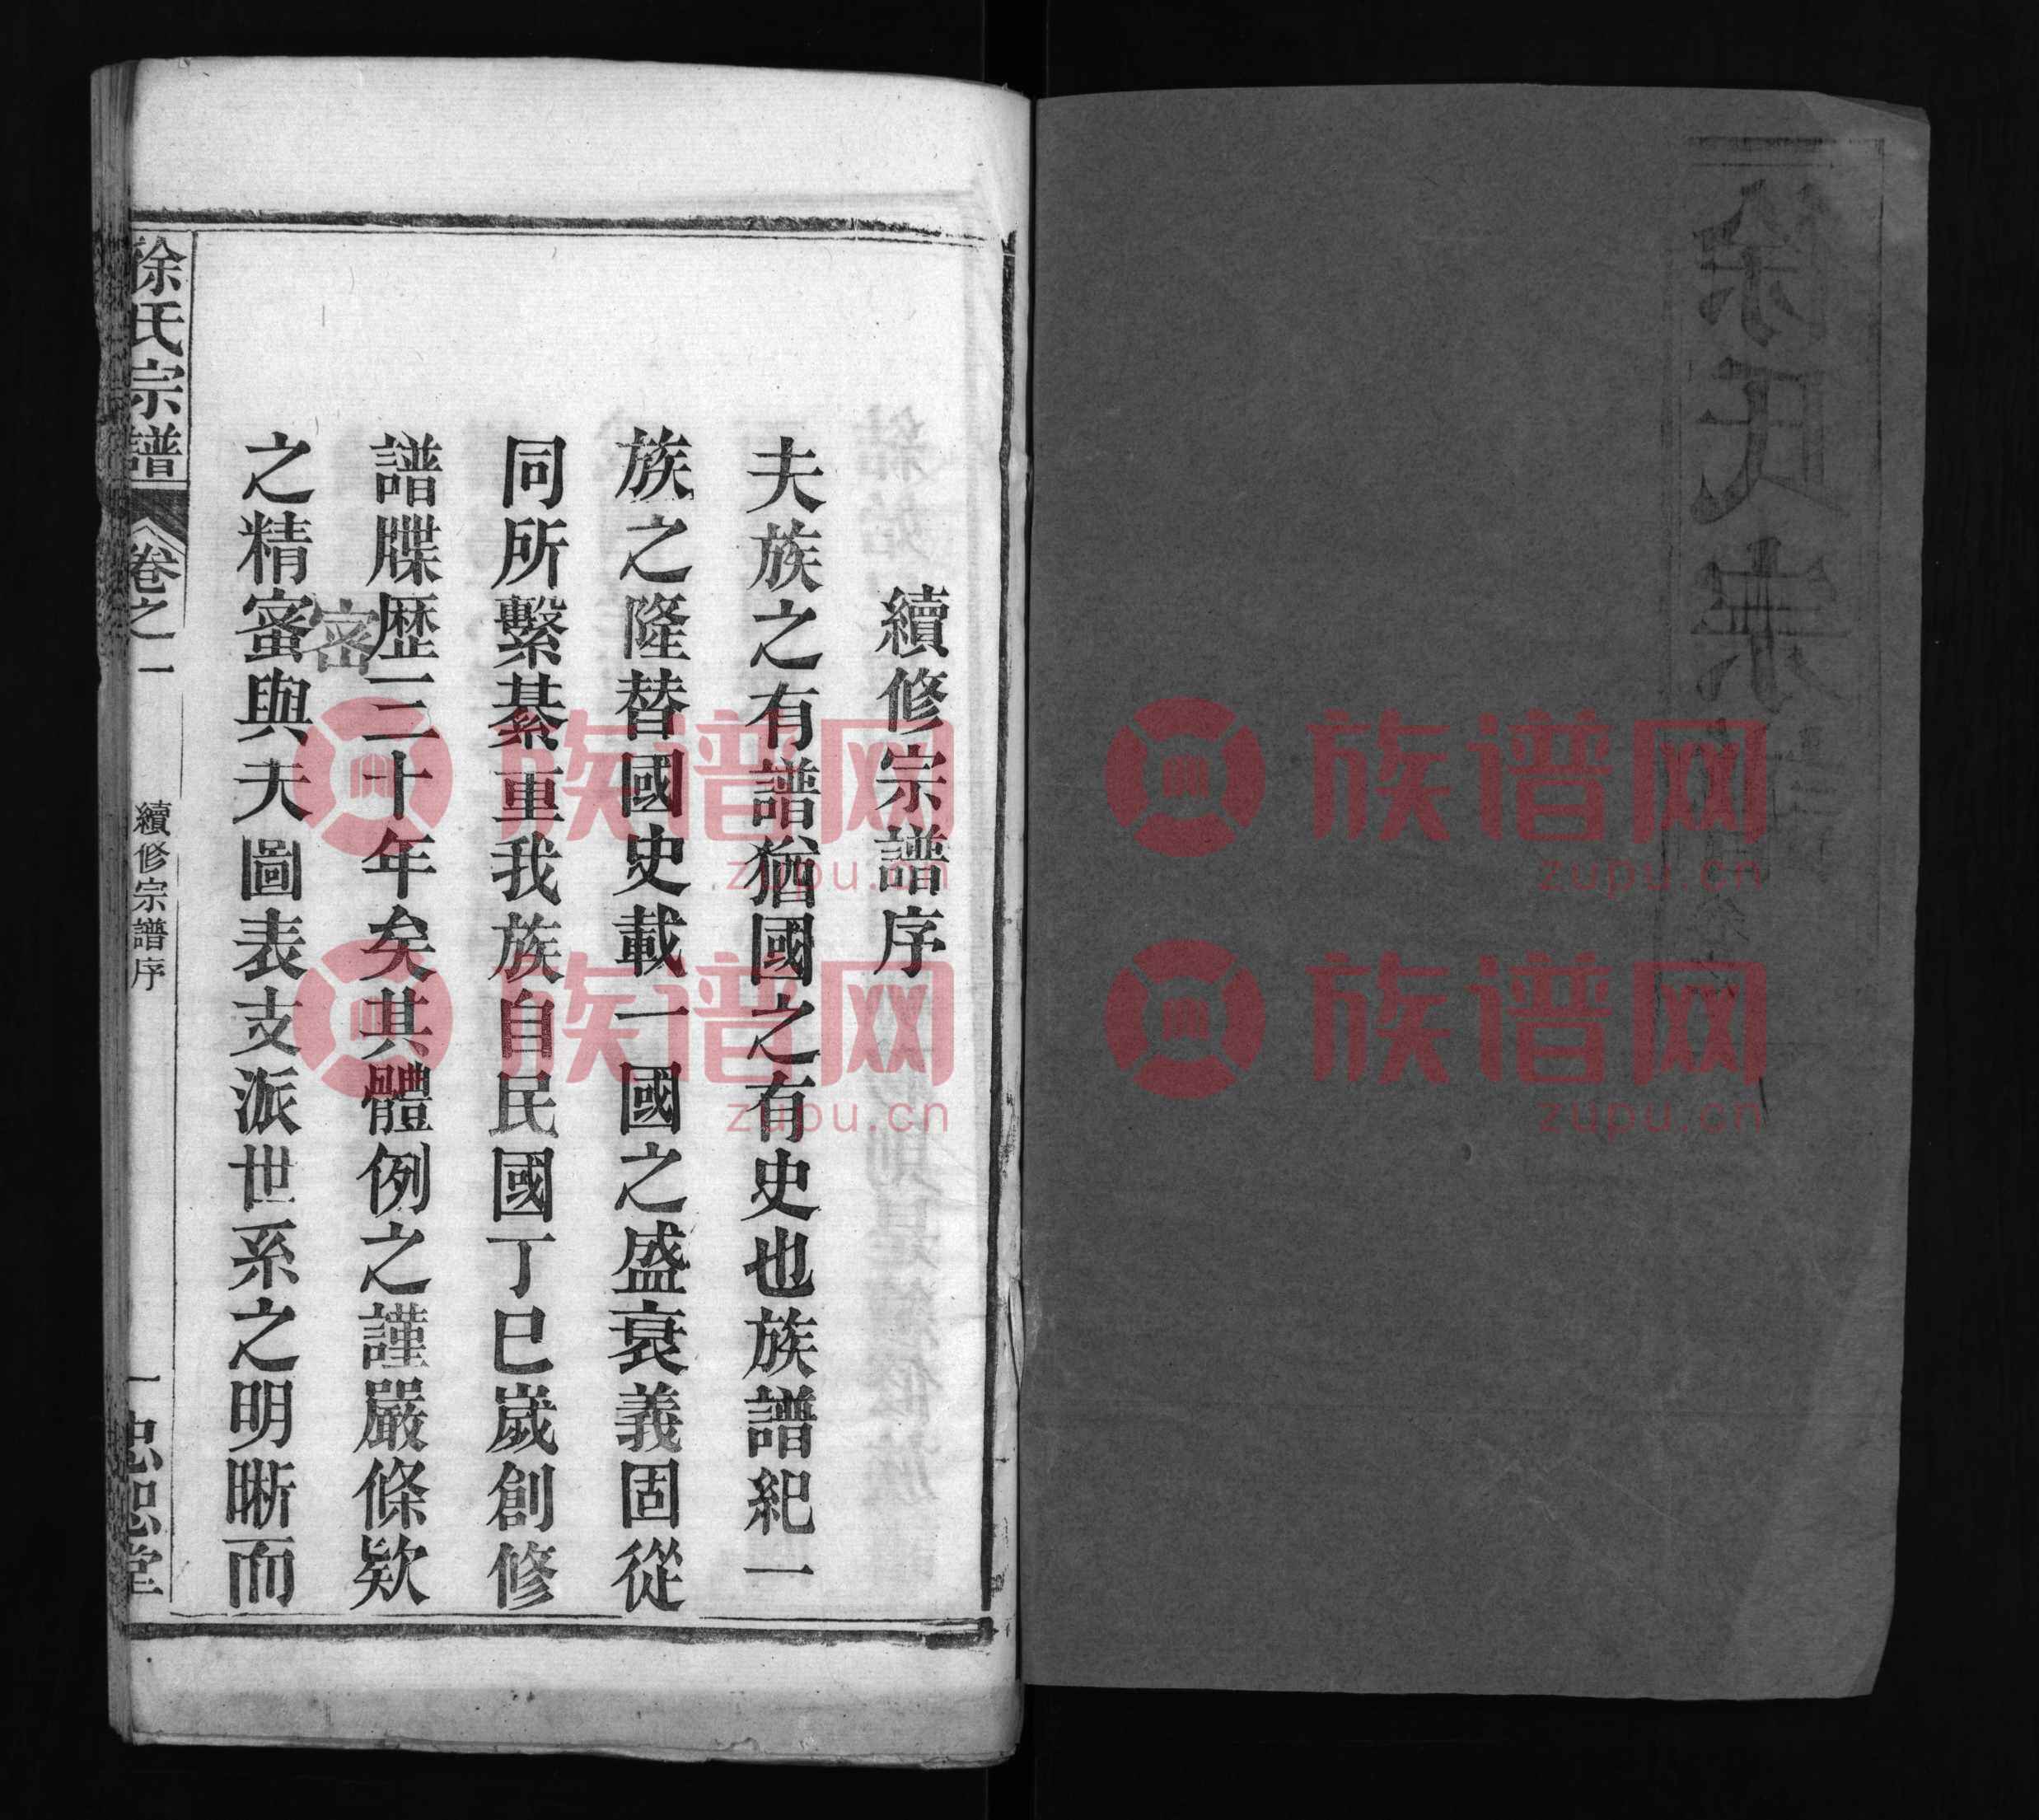 續修宗譜序
夫族之有譜猶國之有史也族譜紀一
族之隆替國史載一國之盛衰義固從
同所繫綦重我族自民國丁巳嵗創修
譜牒歷三十年矣其體例之謹嚴條欵
密
之精蜜與夫圖表支派世系之明晰而
徐氏宗譜
卷之一
續修宗譜序
一
忠恕堂
徐氏宗
族谱网
zupu.cn
族谱网
zupu.cn
族谱网
zupu.cn
族谱网
zupu.cn